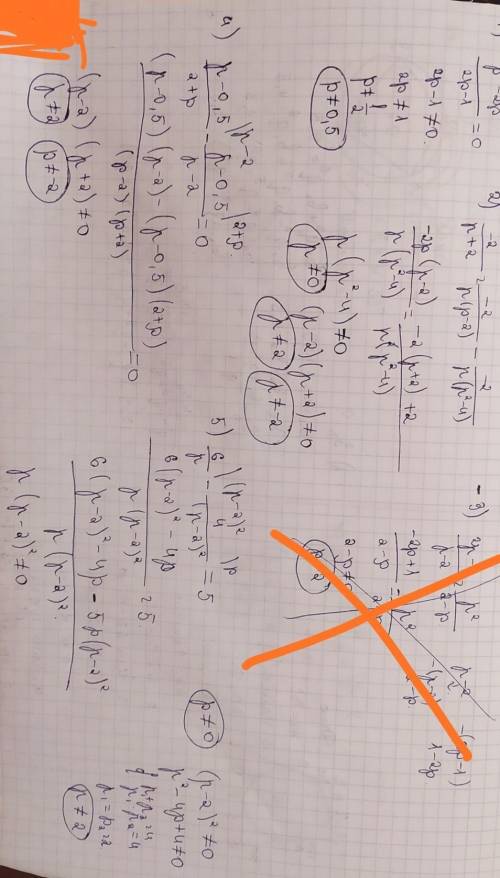 1)
p² - 2p / 2p-1 = 0
2p-1 ≠ 0
2p ≠ 1
p ≠ 1/2
p ≠ 0,5
2)
-2 / p+2 = -2 / p(p-2) - -2 / p(p²-4)
-2p(p-2) / p(p²-4) = -2(p+2)+2 / p(p²-4)
p(p²-4) ≠ 0
p ≠ 0 (p-2)(p+2) ≠ 0
p ≠ 2 p ≠ -2
3)
-2p+1 / 2-p
2-p ≠ 0
4)
p-0,5 / 2+p |p-2 - p-0,5 / p-2 |2+p = 0
(p-0,5)(p-2) - (p-0,5)(2+p) / (p-2)(p+2) = 0
(p-2)(p+2) ≠ 0
p ≠ 2 p ≠ -2
5)
6 / p |(p-2)² - 4 / (p-2)² |p = 5
6(p-2)² - 4p / p(p-2)² = 5
6(p-2)² - 4p - 5p(p-2)² / p(p-2)²
p(p-2)² ≠ 0
p ≠ 0
(p-2)² ≠ 0
p² - 4p + 4 ≠ 0
p₁+p₂=4
p₁·p₂=4
p₁=p₂=2
p ≠ 2